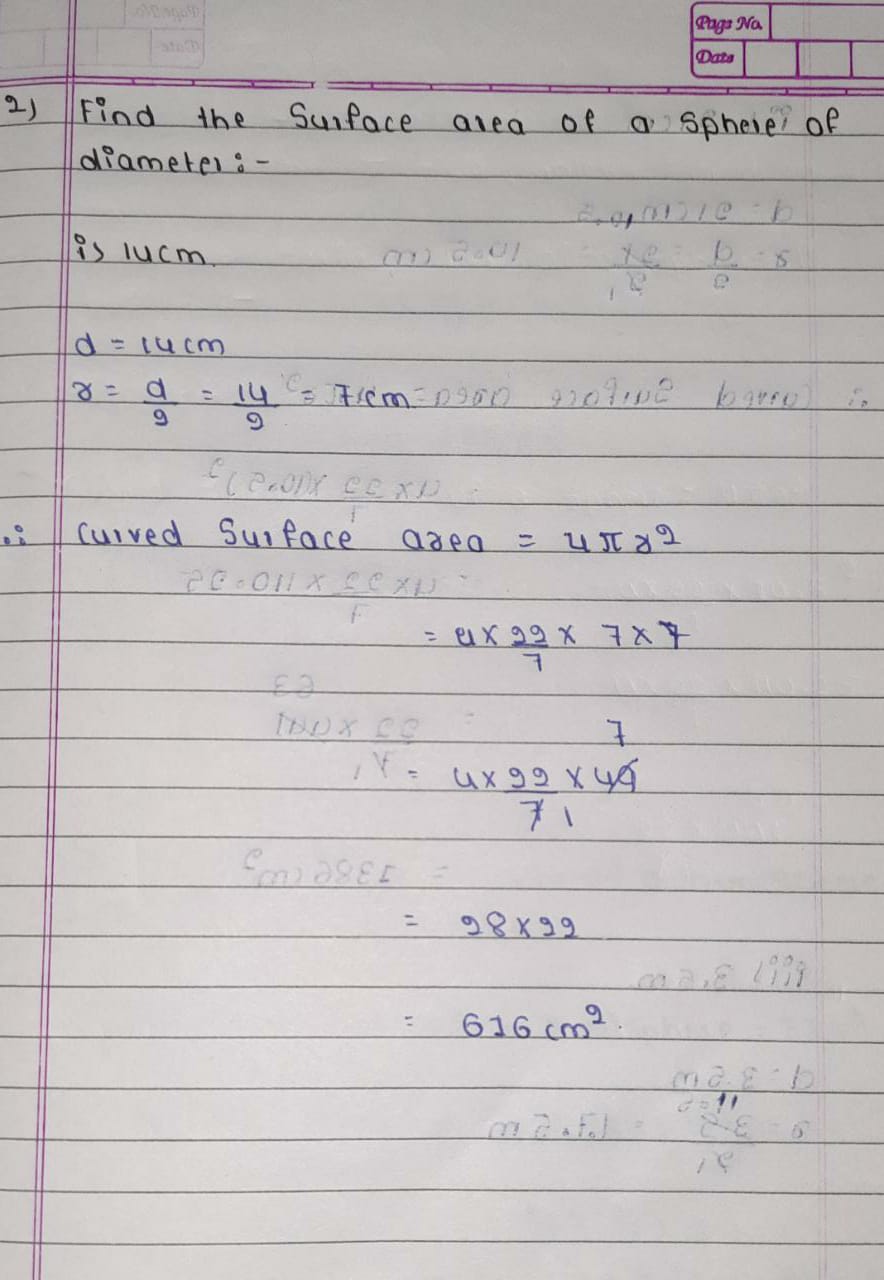 Page No.
Date
2) Find the Surface area of a sphere of
diameter:-
is 14cm.
d = 14cm
r = d/2 = 14/2 = 7cm
∴ Curved Surface area = 4πr2
= 4 × 22/7 × 7 × 7
7
= 4 × 22/7 × 49
1
= 28 × 22
= 616 cm².